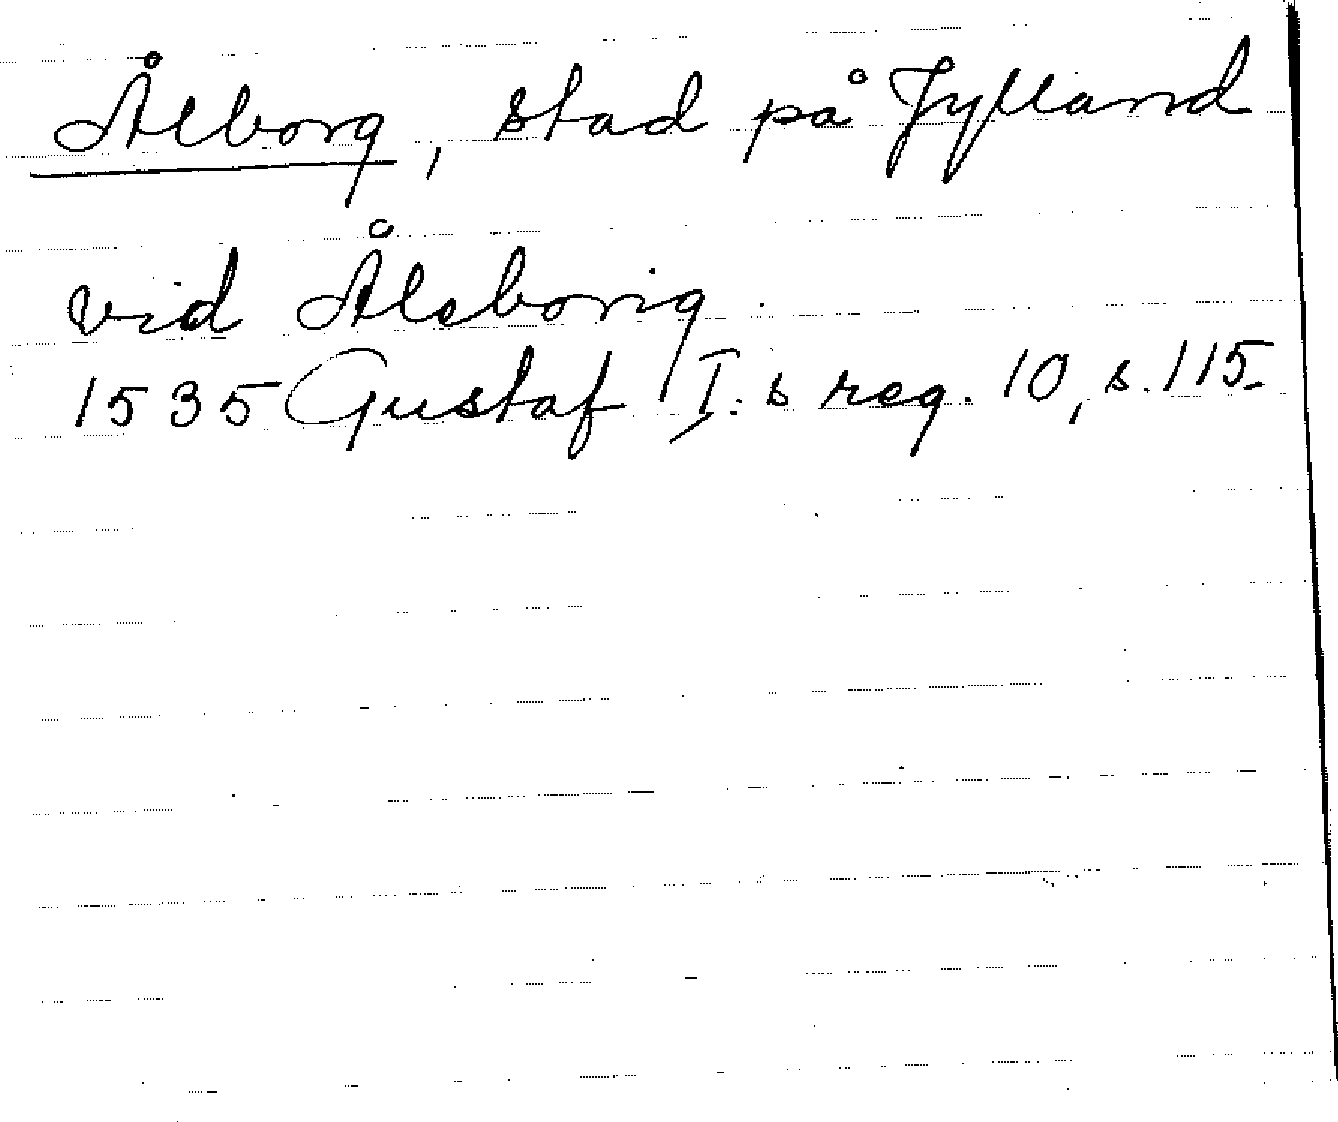 Ålborg, stad på Jylland
vid Åleborig
1535 Gustaf I:s reg. 10, s. 115.